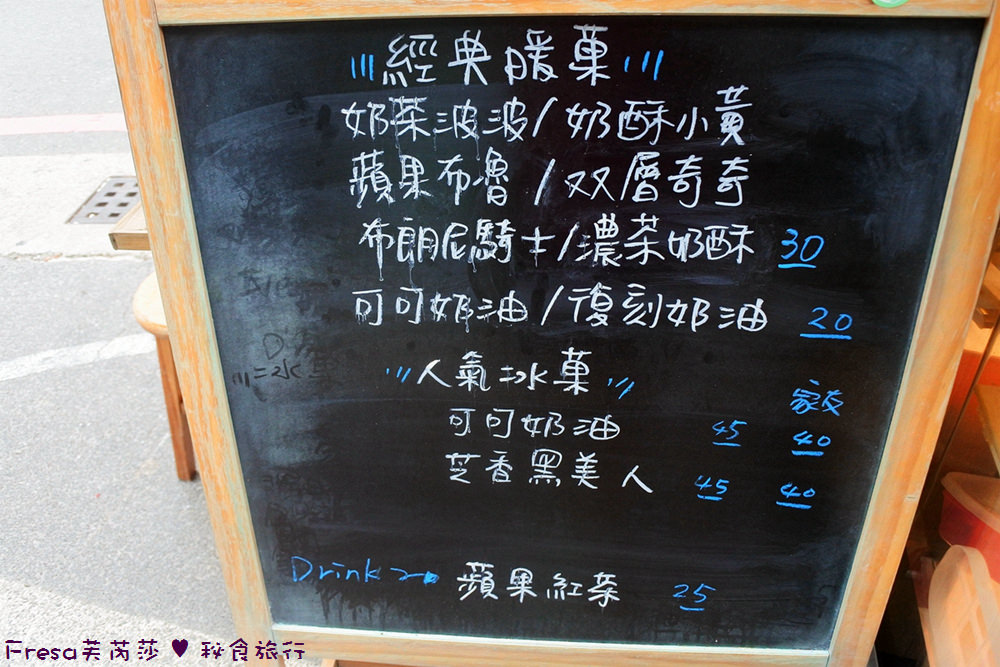 經典暖菓
奶茶波波/奶酥小黃
蘋果布魯/双層奇奇
布朗尼騎士/濃茶奶酥 30
可可奶油/復刻奶油 20
人氣冰菓
家友
可可奶油 45 40
芝香黑美人 45 40
Drink 蘋果紅茶 25
Fresa芙芮莎 ♥ 秋食旅行